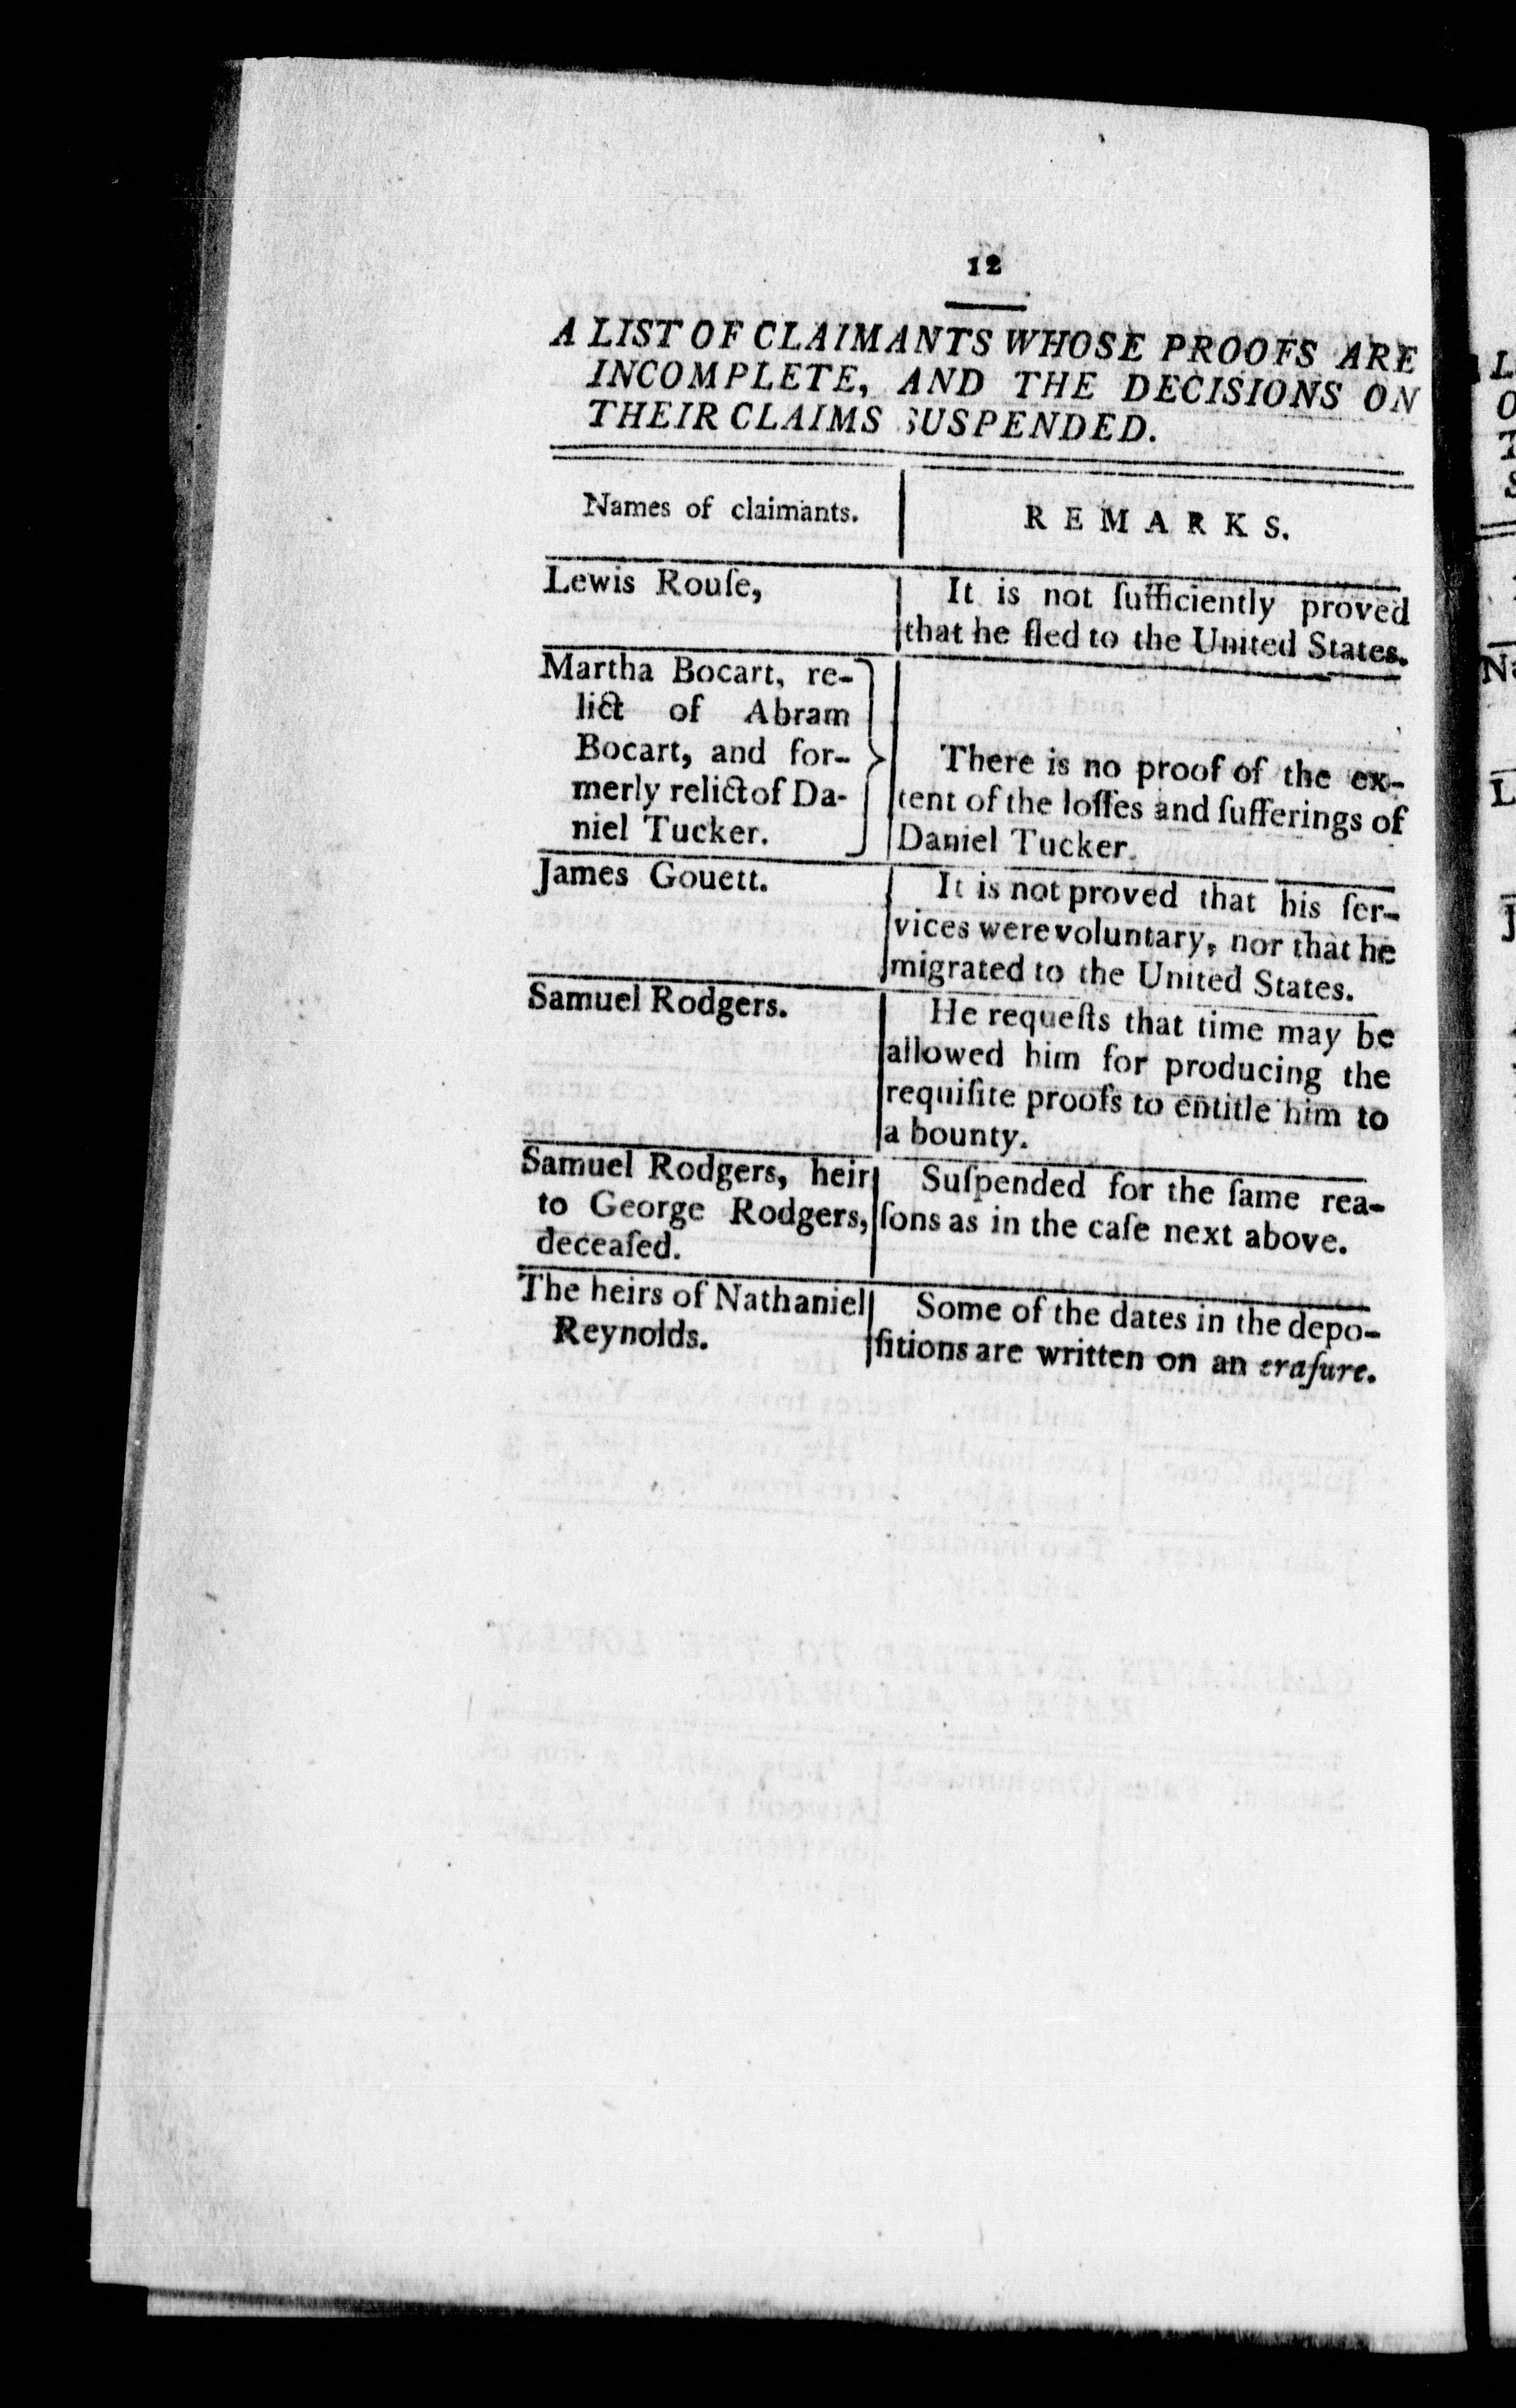 12
A LIST OF CLAIMANTS WHOSE PROOFS ARE
INCOMPLETE, AND THE DECISIONS ON
THEIR CLAIMS SUSPENDED.
Names of claimants.
REMARKS.
Lewis Rouſe,
It is not ſufficiently proved
that he fled to the United States.
Martha Bocart, re-
lict of Abram
Bocart, and for-
merly relict of Da-
niel Tucker.
There is no proof of the ex-
tent of the loſſes and ſufferings of
Daniel Tucker.
James Gouett.
It is not proved that his ſer-
vices were voluntary, nor that he
migrated to the United States.
Samuel Rodgers.
He requeſts that time may be
allowed him for producing the
requiſite proofs to entitle him to
a bounty.
Samuel Rodgers, heir
to George Rodgers,
deceaſed.
Suſpended for the ſame rea-
ſons as in the caſe next above.
The heirs of Nathaniel
Reynolds.
Some of the dates in the depo-
ſitions are written on an eraſure.